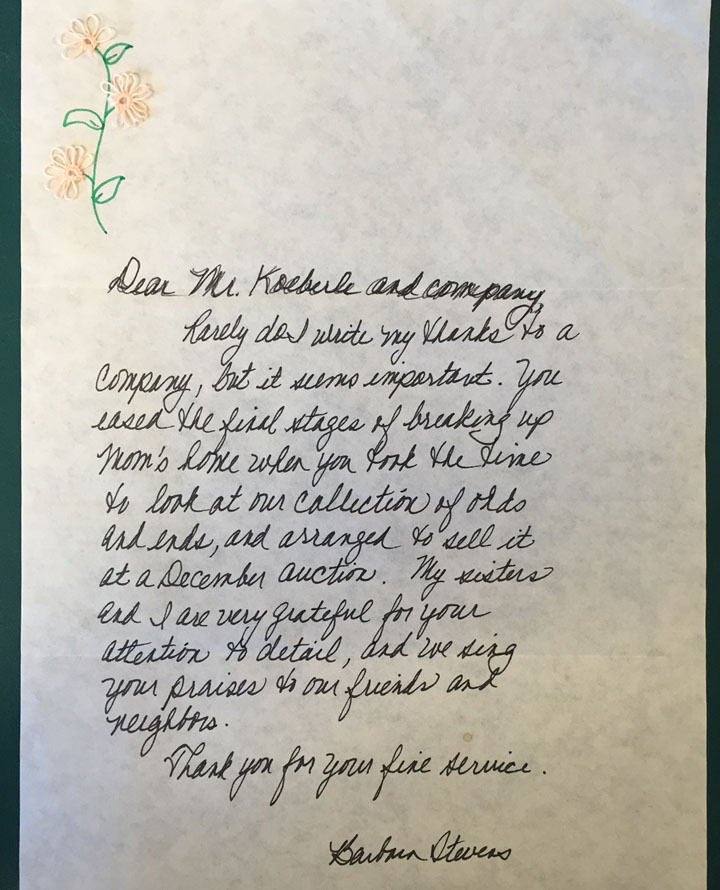 Dear Mr. Koeberle and company,
Rarely do I write my thanks to a
company, but it seems important. You
eased the final stages of breaking up
Mom's home when you took the time
to look at our collection of odds
and ends, and arranged to sell it
at a December auction. My sisters
and I are very grateful for your
attention to detail, and we sing
your praises to our friends and
neighbors.
Thank you for your fine service.
Barbara Stevens